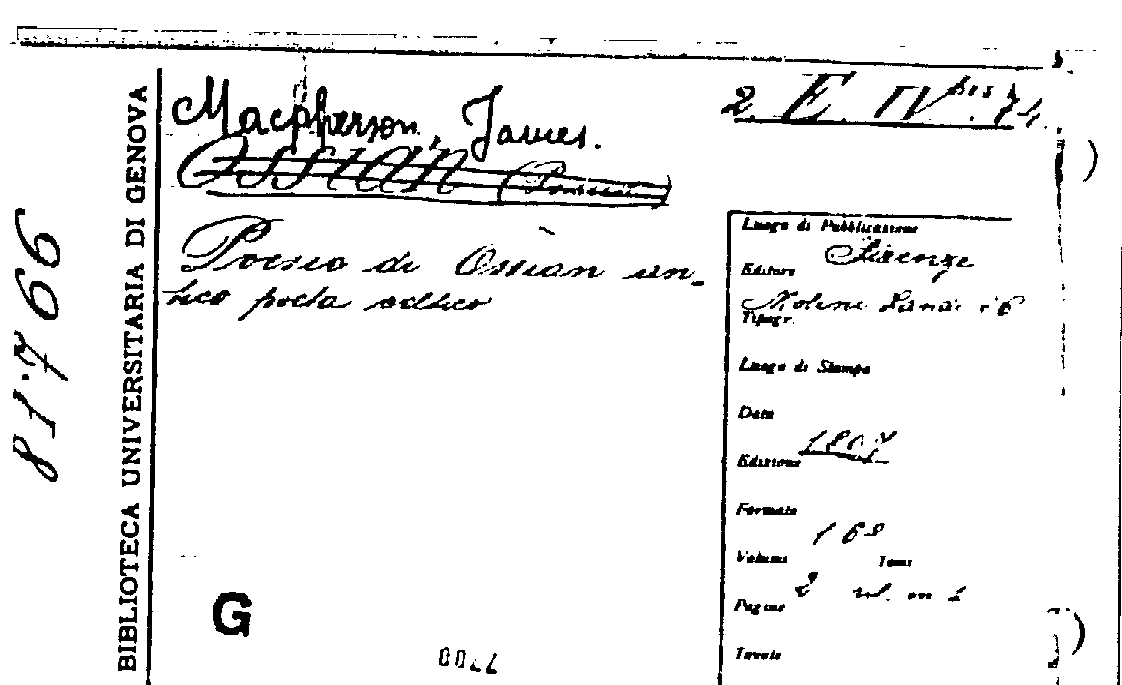 Macpherson, James.
OSSIAN
2. E. IV bis. 74.
Poesie di Ossian an-
tico poeta celtico
BIBLIOTECA UNIVERSITARIA DI GENOVA
81766
Luogo di Pubblicazione
Firenze
Editore
Molini Landi e C
Tipogr.
Luogo di Stampa
Data
1807
Edizione
Formato
16º
Volumi Tomi
2 vol. in 1
Pagine
Tavole
G